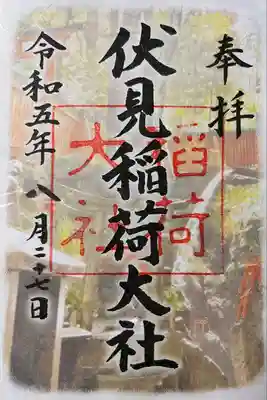 奉拝
伏見稲荷大社
稲荷
大社
令和五年 八月二十七日